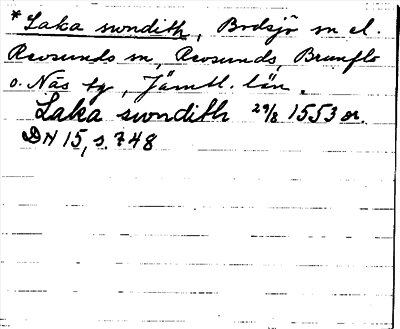 *Laka swndith, Bodsjö sn el.
Revsunds sn, Revsunds, Brunflo
o. Näs tg, Jämtl. län.
Laka swndith 29/8 1553 or.
DN 15, s. 748